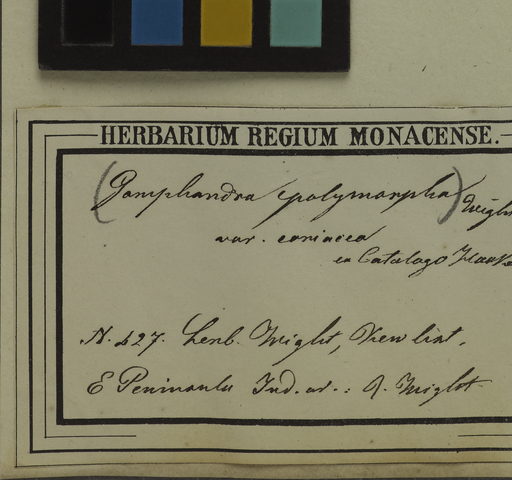 HERBARIUM REGIUM MONACENSE.
(Gomphandra polymorpha) Wight
var. coriacea
ex Catalogo
N. 427. herb. Wight, Kew list.
E Peninsula Ind. or.: R. Wight